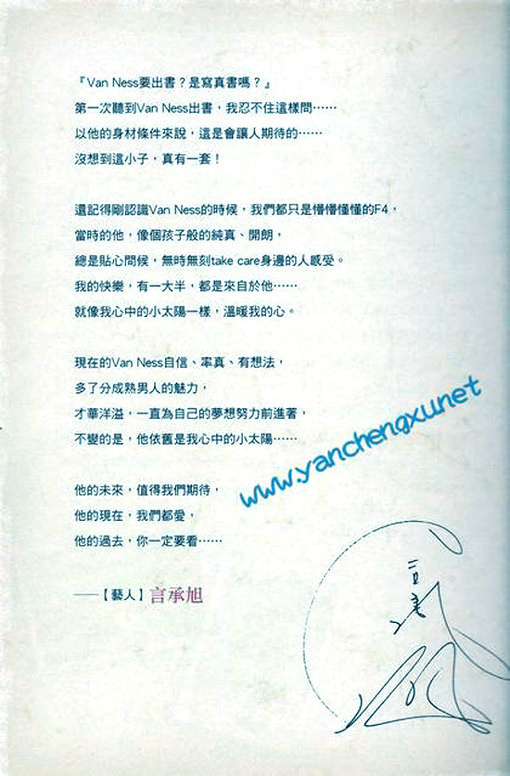 『Van Ness要出書？是寫真書嗎？』
第一次聽到Van Ness出書，我忍不住這樣問……
以他的身材條件來說，這是會讓人期待的……
沒想到這小子，真有一套！
還記得剛認識Van Ness的時候，我們都只是懵懵懂懂的F4，
當時的他，像個孩子般的純真、開朗，
總是貼心問候，無時無刻take care身邊的人感受。
我的快樂，有一大半，都是來自於他……
就像我心中的小太陽一樣，溫暖我的心。
現在的Van Ness自信、率真、有想法，
多了分成熟男人的魅力，
才華洋溢，一直為自己的夢想努力前進著，
不變的是，他依舊是我心中的小太陽……
www.yanchengxu.net
他的未來，值得我們期待，
他的現在，我們都愛，
他的過去，你一定要看……
——【藝人】言承旭